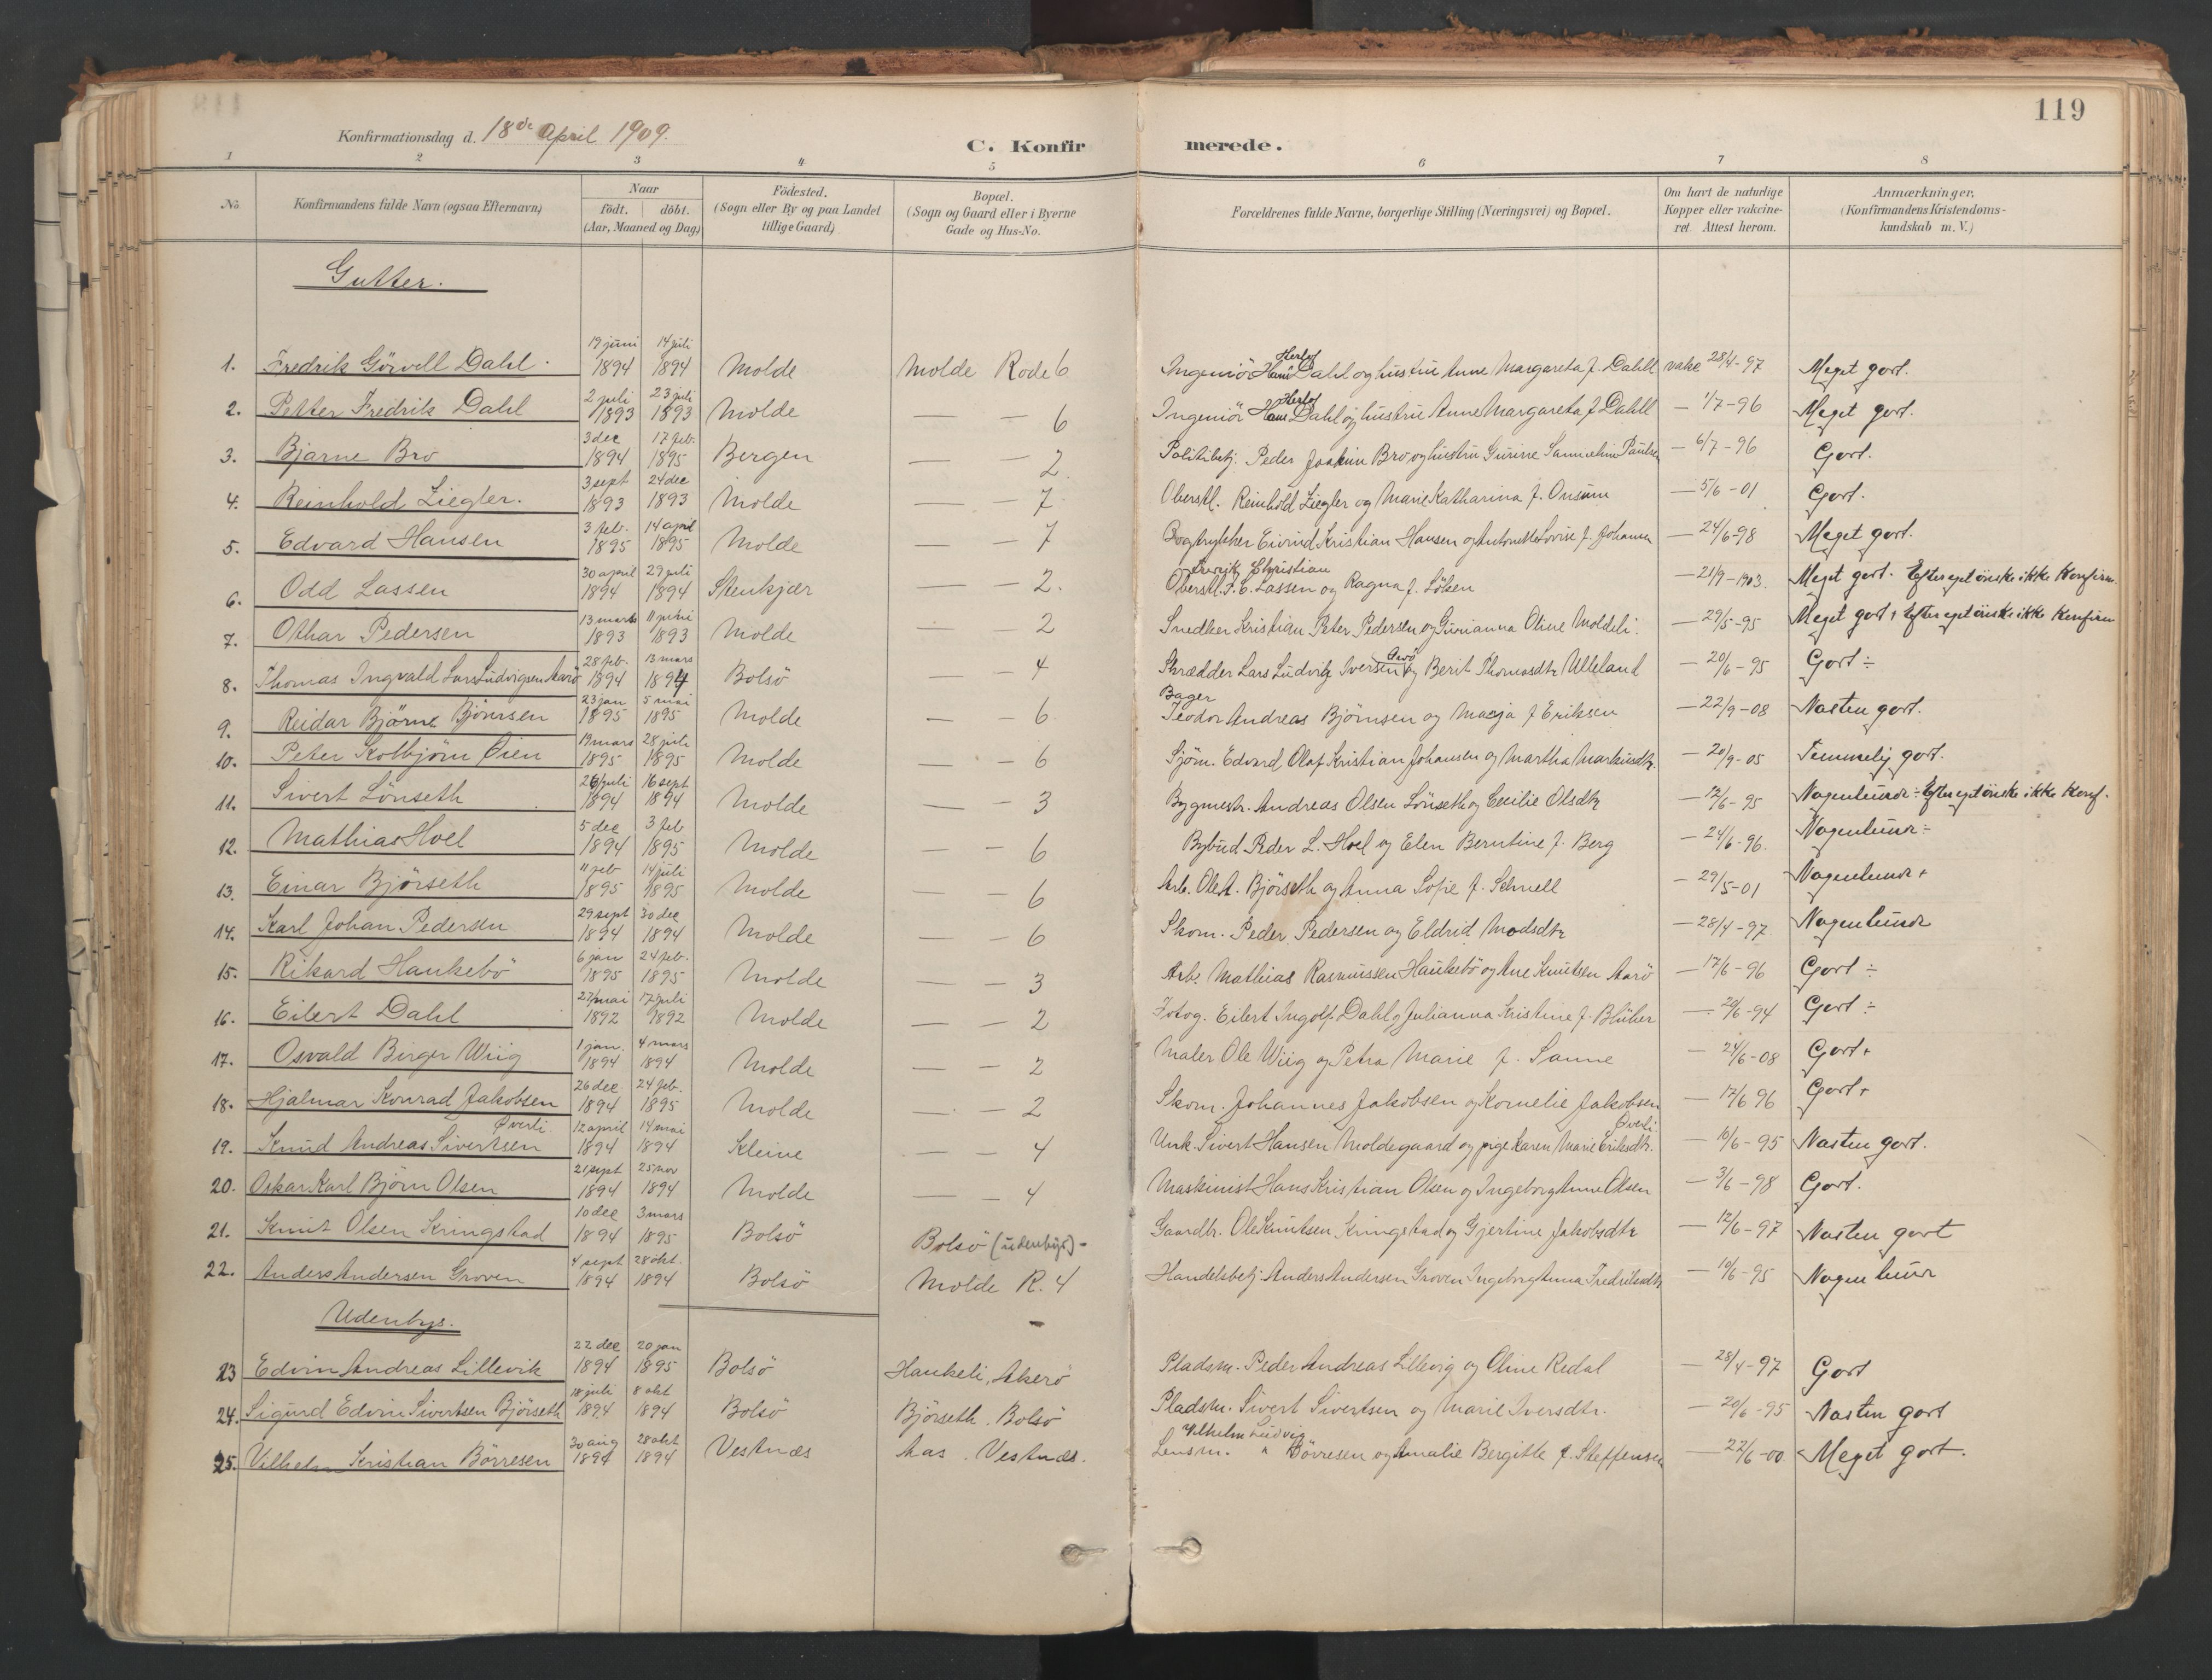 119
Konfirmationsdag d. 18de April 1909.
C. Konfirmerede.
1 2 3 4 5 6 7 8
No
Konfirmandens fulde Navn (ogsaa Efternavn)
Naar
födt. döbt.
(Aar, Maaned og Dag)
Födested.
(Sogn eller By og paa Landet
tillige Gaard)
Bopæl.
(Sogn og Gaard eller i Byerne
Gade og Hus-No.
Forældrenes fulde Navne, borgerlige Stilling (Næringsvei) og Bopæl.
Om havt de naturlige
Kopper eller vakcine-
ret. Attest herom.
Anmærkninger.
(Konfirmandens Kristendoms-
kundskab m. V.)
Gutter.
1. Fredrik Görvell Dahl. 19 juni 1894 14 juli 1894 Molde Molde Rode 6 Ingeniör Hans Herlof Dahl og hustru Anne Margareta f. Dahll vakc 28/4-97 Meget godt.
2. Petter Fredrik Dahl 2 juli 1893 23 juli 1893 Molde — — 6 Ingeniör Hans Herlof Dahl og hustru Anne Margareta f Dahll — 1/7-96 Meget godt.
3. Bjarne Bro 3 dec 1894 17 feb. 1895 Bergen — — 2. Politibetj. Peder Joakim Bro og hustru Gurine — 6/7-96 Godt.
4. Reinhold Ziegler. 3 sept 1893 24 dec 1893 Molde — — 7. Oberstl. Reinhold Ziegler og Marie Katharina f. Onsum — 5/6-01 Godt.
5. Edvard Hansen 3 feb. 1895 14 april 1895 Molde — — 7 Bogtrykker Eivind Kristian Hansen og Antonette Lovise f. Johansen — 24/6-98 Meget godt.
6. Odd Lassen 30 april 1894 29 juli 1894 Stenkjær — — 2. Oberstl. Christian Lassen og Ragna f. Löken — 21/9-1903. Meget godt. Efter eget önske ikke Konfirm.
7. Othar Pedersen 13 mars 1893 11 juni 1893 Molde — — 2 Snedker Kristian Peter Pedersen og Gurianna Oline Moldeli. — 29/5-95 Meget godt + Efter eget önske ikke Konfirm
8. Thomas Ingvald Lars Ludvigsen Aarö 28 feb. 1894 13 mars 1894 Bolsö — — 4 Skrædder Lars Ludvig Iversen Arö og Berit Thomasdtr Ulleland — 20/6-95 Godt ÷
9. Reidar Bjarne Björnsen 23 jan 1895 5 mai 1895 Molde — — 6. Bager Teodor Andreas Björnsen og Marja f Eriksen — 22/9-08 Næsten godt.
10. Peter Kolbjörn Öien 19 mars 1895 28 juli 1895 Molde — — 6 Sjöm. Edvard Olaf Kristian Johansen og Martha Markusdtr. — 20/9-05 Temmelig godt.
11. Sivert Lönseth 26 juli 1894 16 sept 1894 Molde — — 3 Bygmestr. Andreas Olsen Lönseth og Cecilie Olsdtr — 12/6-95 Nogenlunde ÷ Efter eget önske ikke Konf.
12. Mathias Hoel 5 dec 1894 3 feb 1895 Molde — — 6 Bybud Peder L. Hoel og Elen Berntine f. Berg — 24/6-96. Nogenlunde ÷
13. Einar Björseth 11 feb 1895 14 juli 1895 Molde — — 6 Arb. Ole A. Björseth og Anna Sofie f. Schnell — 29/5-01 Nogenlunde +
14. Karl Johan Pedersen 29 sept 1894 30 dec 1894 Molde — — 6 Skom. Peder Pedersen og Eldrid Madsdtr — 28/4-97. Nogenlunde
15. Rikard Haukebö 6 jan 1895 24 feb. 1895 Molde — — 3 Arb. Mathias Rasmussen Haukebö og Ane Knutsen Aarö — 17/6-96 Godt ÷
16. Eilert Dahl 27 mai 1892 17 juli 1892 Molde — — 2 Fotog. Eilert Ingolf Dahl og Julianna Kristine f. Blüher — 20/6-94 Godt ÷
17. Osvald Birger Wiig 1 jan. 1894 4 mars 1894 Molde — — 2 Maler Ole Wiig og Petra Marie f. Sanne — 24/6-08 Godt +
18. Hjalmar Konrad Jakobsen 26 dec. 1894 24 feb. 1895 Molde — — 2 Skom. Johannes Jakobsen og Kornelie Jakobsen — 17/6 96 Godt +
19. Knud Andreas Sivertsen Överli. 12 april 1894 14 mai 1894 Kleive — — 4 Unk. Sivert Hansen Moldegaard og pige Karen Marie Eriksdtr. Överli — 10/6-95 Næsten godt.
20. Oskar Karl Björn Olsen 21 sept 1894 25 nov 1894 Molde — — 4 Maskinist Hans Kristian Olsen og Ingeborg Anne Olsen — 3/6-98 Godt.
21. Knut Olsen Kringstad 10 dec 1894 3 mars 1895 Bolsö Bolsö (udenbys) - Gaardbr. Ole Knutsen Kringstad og Gjertine Jakobsdtr — 12/6-97 Næsten godt
22. Anders Andersen Groven 4 sept 1894 28 okt. 1894 Bolsö Molde R. 4 Handelsbetj. Anders Andersen Groven Ingeborg Anna Fredriksdtr — 10/6-95 Nogenlunde
Udenbys.
23 Edvin Andreas Lillevik 22 dec 1894 20 jan 1895 Bolsö Haukeli, Akerö Pladsm. Peder Andreas Lillevig og Oline Redal — 28/4-97 Godt
24. Sigurd Edvin Sivertsen Björseth 18 juli 1894 8 okt 1894 Bolsö Björseth. Bolsö Pladsm. Sivert Sivertsen og Marie Iversdtr. — 20/6-95 Næsten godt
25. Vilhelm Kristian Börresen 30 aug 1894 28 okt 1894 Vestnæs Aas. Vestnæs. Lensm. Vilhelm Ludvig Börresen og Amalie Bergitte f. Steffensen — 22/6-00 Meget godt.